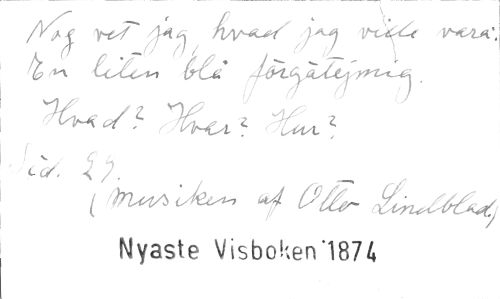 Nog vet jag, hvad jag ville vara:
En liten blå förgätejmig.
Hvad? Hvar? Hur?
Sid. 29.
(musiken af Otto Lindblad,)
Nyaste Visboken 1874